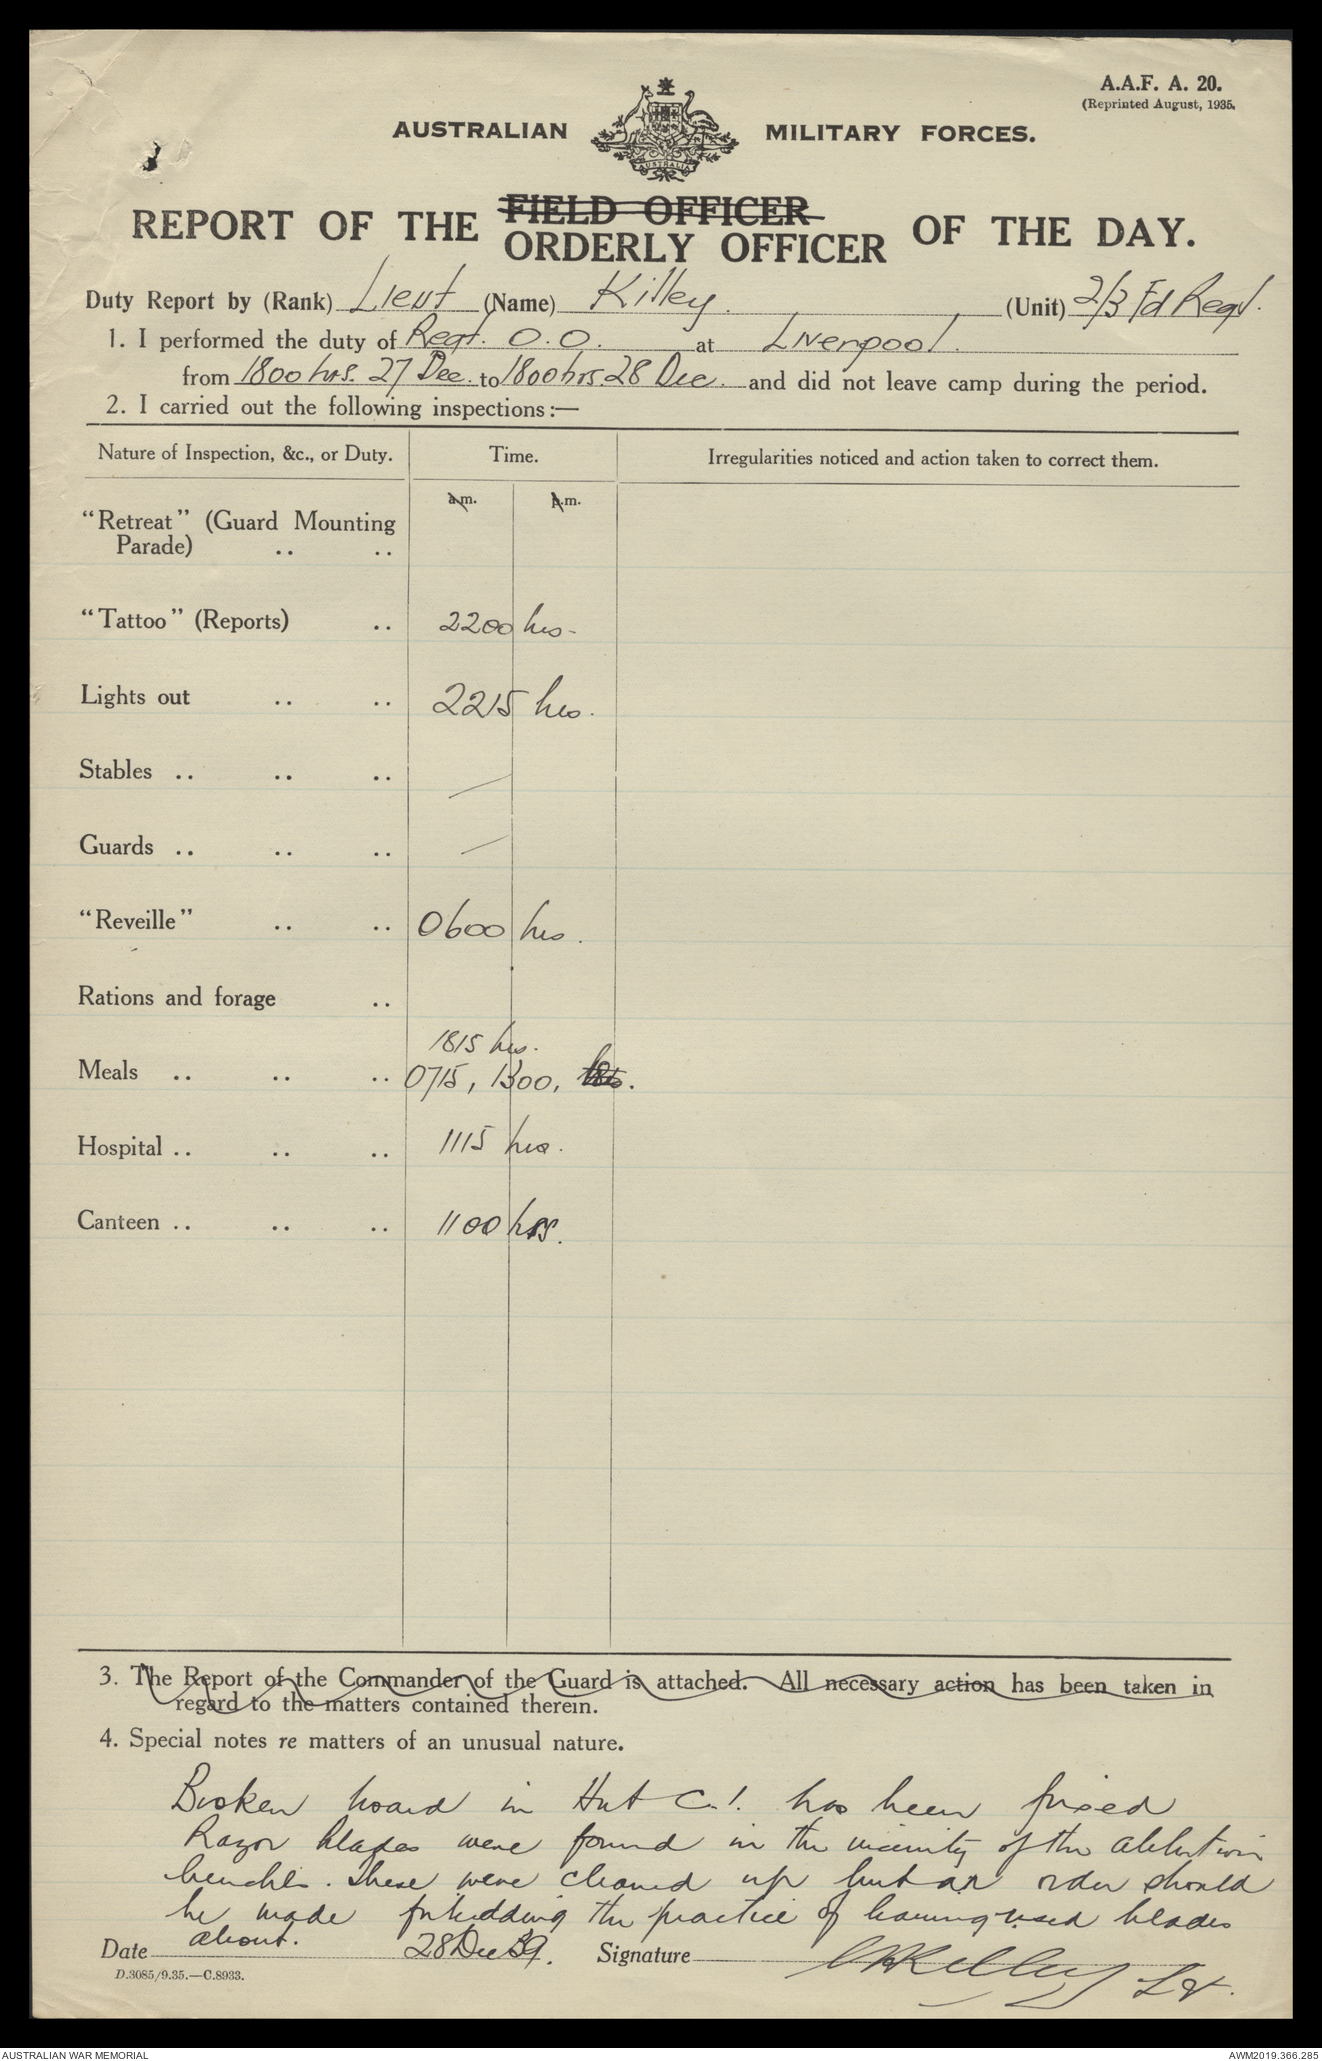 A.A.F. A. 20.
(Reprinted August, 1935.
AUSTRALIAN MILITARY FORCES.
AUSTRALIA
REPORT OF THE FIELD OFFICER OF THE DAY.
ORDERLY OFFICER
Duty Report by (Rank) Lieut (Name) Killey. (Unit) 2/3 Fd Regt.
1. I performed the duty of Regt. O.O. at Liverpool.
from 1800 hrs. 27 Dec. to 1800 hrs. 28 Dec. and did not leave camp during the period.
2. I carried out the following inspections:—
Nature of Inspection, &c., or Duty. Time. Irregularities noticed and action taken to correct them.
a.m. p.m.
"Retreat" (Guard Mounting
Parade) .. ..
"Tattoo" (Reports) .. 2200 hrs.
Lights out .. .. 2215 hrs.
Stables .. .. .. —
Guards .. .. .. —
"Reveille" .. .. 0600 hrs.
Rations and forage ..
1815 hrs.
Meals .. .. .. 0715, 1300,
Hospital .. .. .. 1115 hrs.
Canteen .. .. .. 1100 hrs.
3. The Report of the Commander of the Guard is attached. All necessary action has been taken in
regard to the matters contained therein.
4. Special notes re matters of an unusual nature.
Broken board in Hut C.1. has been fixed
Razor blades were found in the vicinity of the ablution
benches. These were cleaned up but an order should
be made forbidding the practice of leaving used blades
about.
Date 28 Dec 39. Signature Killey Lt.
D.3085/9.35.—C.8933.
AUSTRALIAN WAR MEMORIAL AWM2019.366.285